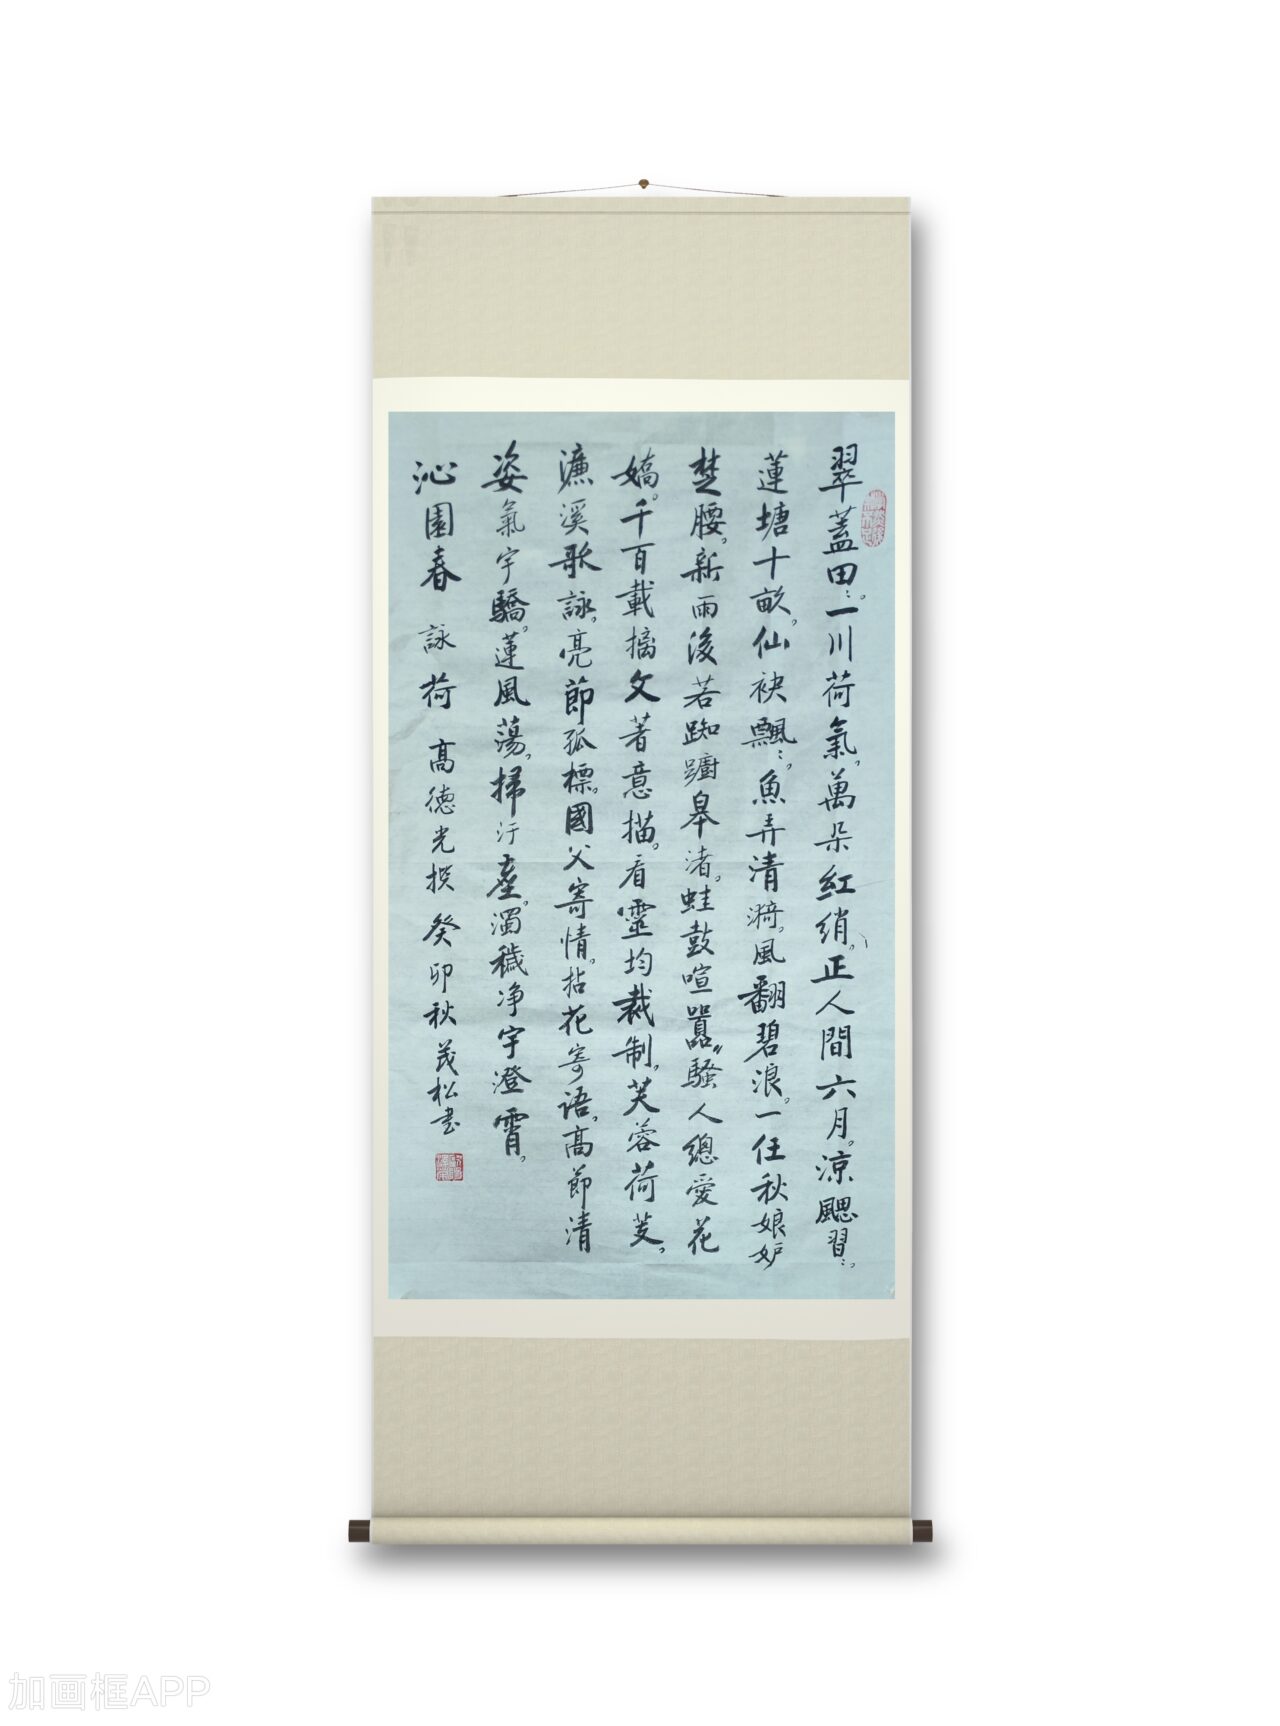 翠蓋田〻。一川荷氣，萬朵紅綃。正人間六月。涼颸習〻，
蓮塘十畝，仙袂飄〻，魚弄清漪。風翻碧浪。一任秋娘妒
楚腰。新雨後若踟躕皋渚。蛙鼓喧囂。騷人總愛花
嬌。千百載摛文著意描。看靈均裁制，芙蓉荷芰，
濂溪歌詠，亮節孤標。國父寄情。拈花寄语，高節清
姿氣宇驕。蓮風蕩，掃汙塵。濁穢净宇澄霄。
沁園春 詠荷 高德光撰 癸卯秋 茂松书
加画框APP